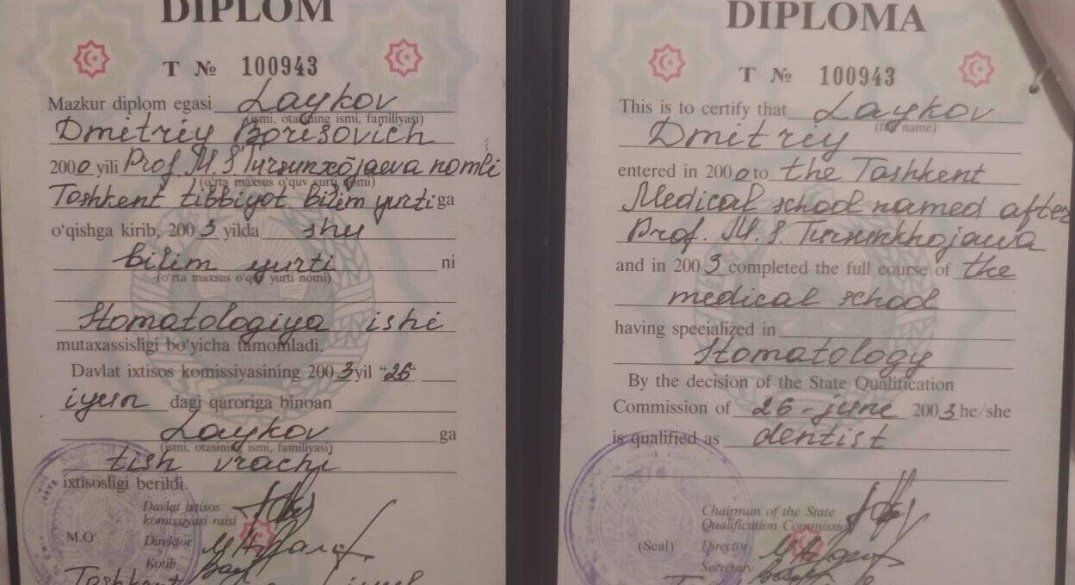 DIPLOM
T № 100943
Mazkur diplom egasi Laykov
(ismi, otasining ismi, familiyasi)
Dmitriy Borisovich
2000 yili Prof. M. S Tursunxòjaeva nomli
(o'rta maxsus o'quv yurti nomi)
Toshkent tibbiyot bilim yurti ga
o'qishga kirib, 2003 yilda shu
bilim yurti ni
(o'rta maxsus o'quv yurti nomi)
Stomatologiya ishi
mutaxassisligi bo'yicha tamomladi.
Davlat ixtisos komissiyasining 2003 yil "26"
iyun dagi qaroriga binoan
Laykov ga
(ismi, otasining ismi, familiyasi)
tish vrachi
ixtisosligi berildi.
Davlat ixtisos
komissiyasi raisi
M.O'. Direktor
Kotib
Toshkent
DIPLOMA
T № 100943
This is to certify that Laykov
(full name)
Dmitriy
entered in 2000 to the Tashkent
Medical school named after
Prof. M. S. Tursunkhojaeva
and in 2003 completed the full course of the
medical school
having specialized in
Stomatology
By the decision of the State Qualification
Commission of 26-june 2003 he/she
is qualified as dentist
Chairman of the State
Qualification Commission
(Seal) Director
Secretary